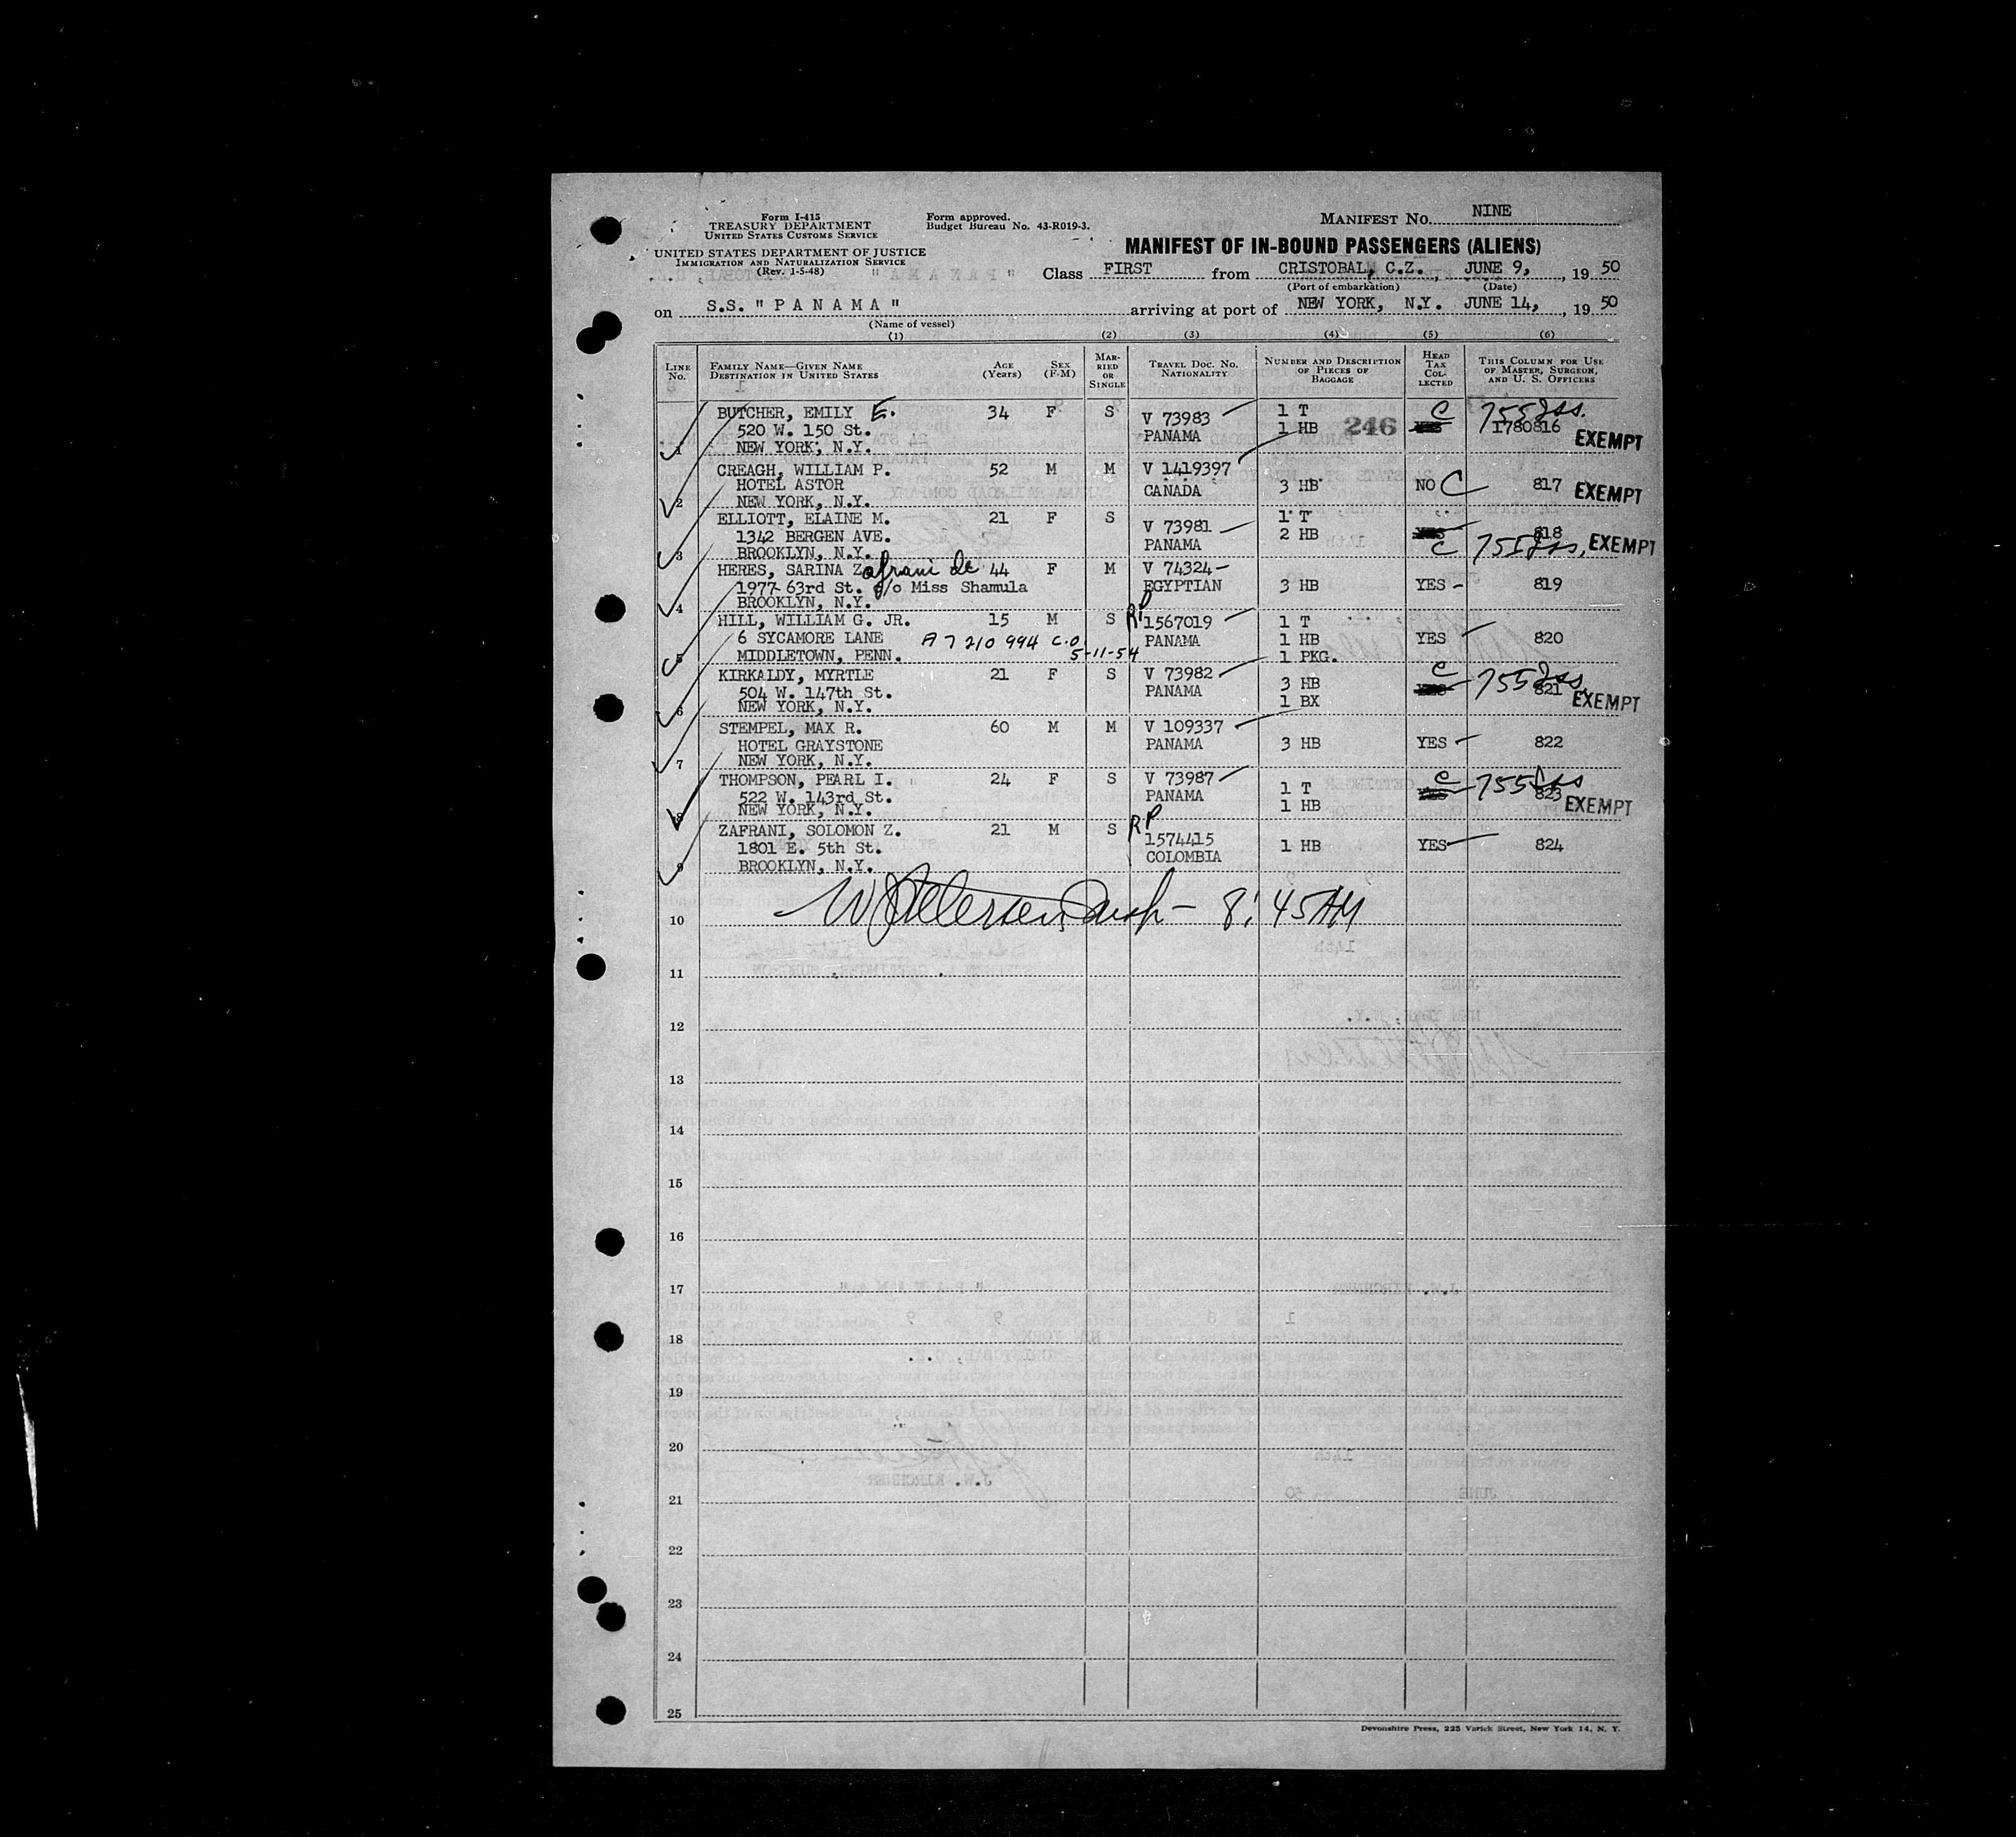 Form I-415
TREASURY DEPARTMENT
UNITED STATES CUSTOMS SERVICE
Form approved.
Budget Bureau No. 43-R019-3.
MANIFEST NO. NINE
UNITED STATES DEPARTMENT OF JUSTICE
IMMIGRATION AND NATURALIZATION SERVICE
(Rev. 1-5-48)
MANIFEST OF IN-BOUND PASSENGERS (ALIENS)
Class FIRST from CRISTOBAL, C.Z., JUNE 9, , 19 50
(Port of embarkation) (Date)
on S.S. "PANAMA" arriving at port of NEW YORK, N.Y. JUNE 14, , 19 50
(Name of vessel)
(1) (2) (3) (4) (5) (6)
LINE No. FAMILY NAME—GIVEN NAME DESTINATION IN UNITED STATES AGE (Years) SEX (F-M) MARRIED OR SINGLE TRAVEL DOC. NO. NATIONALITY NUMBER AND DESCRIPTION OF PIECES OF BAGGAGE HEAD TAX COLLECTED THIS COLUMN FOR USE OF MASTER, SURGEON, AND U. S. OFFICERS
BUTCHER, EMILY E. 34 F S V 73983 1 T C
520 W. 150 St. PANAMA 1 HB 246 YES 1780816 EXEMPT
1 NEW YORK, N.Y.
CREAGH, WILLIAM P. 52 M M V 1419397
HOTEL ASTOR CANADA 3 HB NO C 817 EXEMPT
2 NEW YORK, N.Y.
ELLIOTT, ELAINE M. 21 F S V 73981 1 T
1342 BERGEN AVE. PANAMA 2 HB YES 818
3 BROOKLYN, N.Y. C EXEMPT
HERES, SARINA Zafrani de 44 F M V 74324
1977-63rd St. c/o Miss Shamula EGYPTIAN 3 HB YES 819
4 BROOKLYN, N.Y.
HILL, WILLIAM G. JR. 15 M S RP 1567019 1 T
6 SYCAMORE LANE A7210994 C.O. PANAMA 1 HB YES 820
5 MIDDLETOWN, PENN. 5-11-54 1 PKG.
KIRKALDY, MYRTLE 21 F S V 73982 3 HB C
504 W. 147th St. PANAMA 1 BX YES 821 EXEMPT
6 NEW YORK, N.Y.
STEMPEL, MAX R. 60 M M V 109337
HOTEL GRAYSTONE PANAMA 3 HB YES 822
7 NEW YORK, N.Y.
THOMPSON, PEARL I. 24 F S V 73987 1 T C
522 W. 143rd St. PANAMA 1 HB YES 823 EXEMPT
8 NEW YORK, N.Y.
ZAFRANI, SOLOMON Z. 21 M S RP 1574415
1801 E. 5th St. COLOMBIA 1 HB YES 824
9 BROOKLYN, N.Y.
8:45 AM
10
11
12
13
14
15
16
17
18
19
20
21
22
23
24
25
Devonshire Press, 225 Varick Street, New York 14, N. Y.